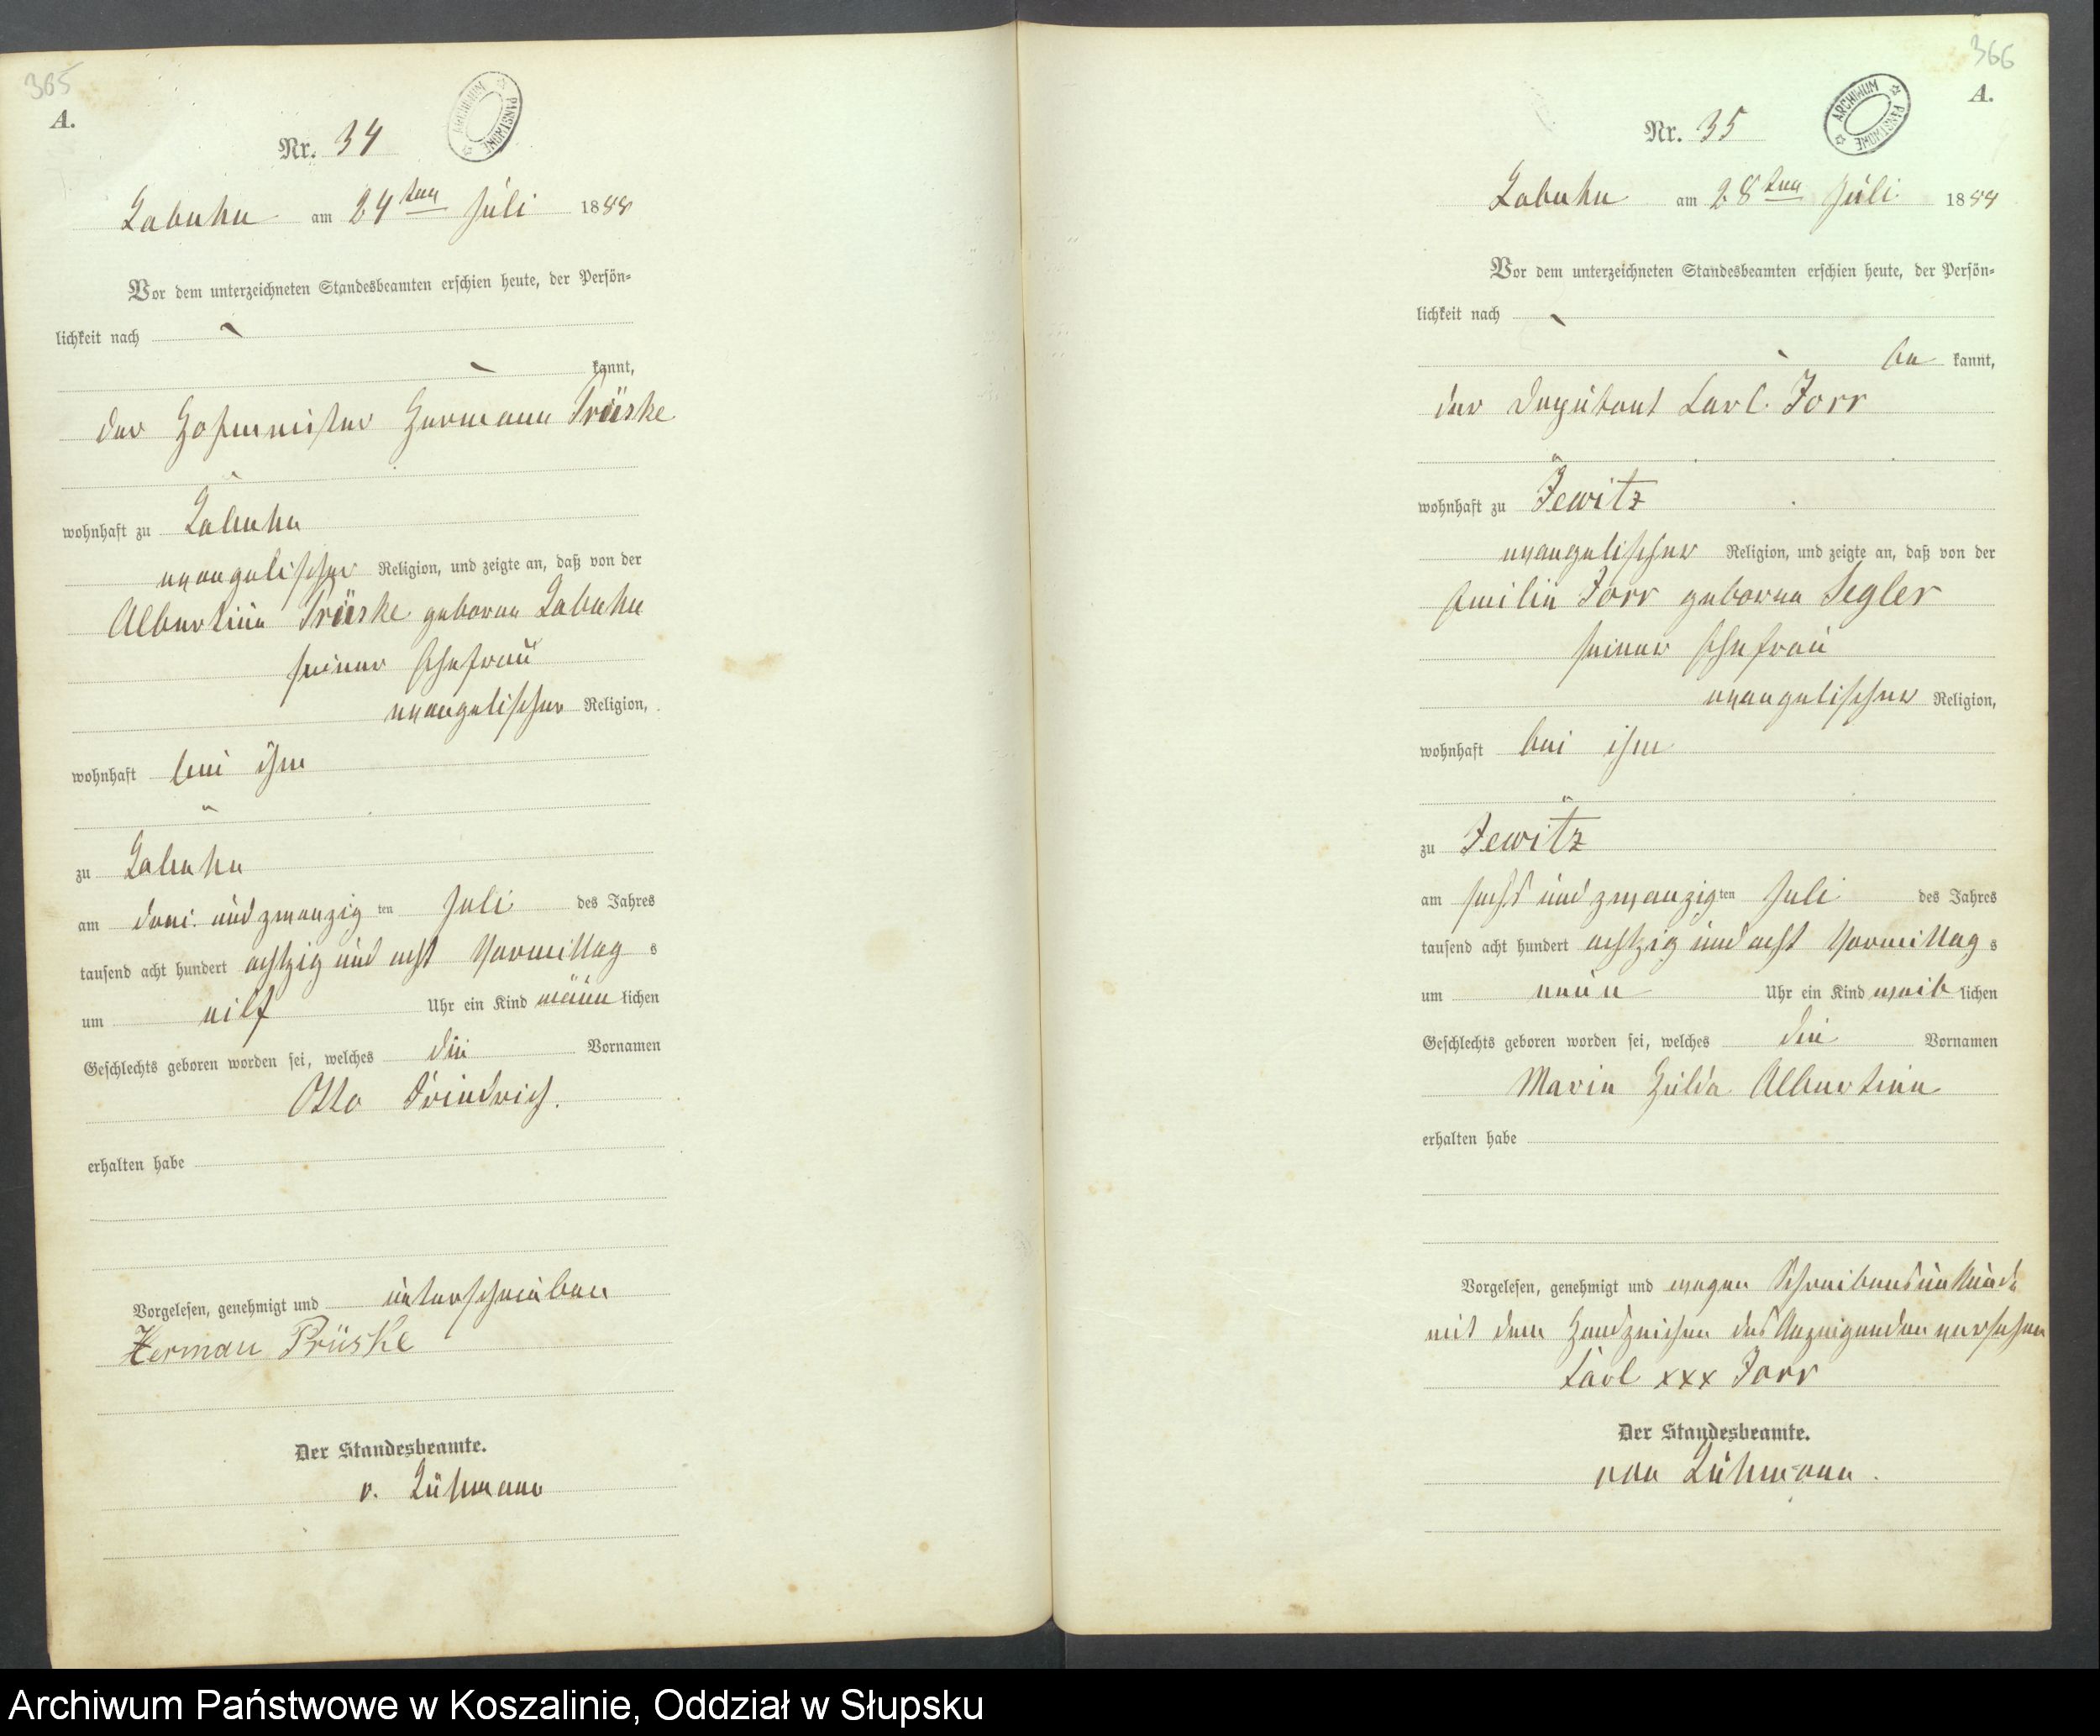 365
A.
ARCHIWUM PAŃSTWOWE
Nr. 34
Labuhn am 24ten Juli 1888
Vor dem unterzeichneten Standesbeamten erschien heute, der Persön-
lichkeit nach
kannt,
der Hofmeister Hermann Prüske
wohnhaft zu Labuhn
evangelischer Religion, und zeigte an, daß von der
Albertine Prüske geborne Labuhn
seiner Ehefrau
evangelischer Religion,
wohnhaft bei ihm
zu Labuhn
am drei und zwanzig ten Juli des Jahres
tausend acht hundert achtzig und acht Vormittag s
um elf Uhr ein Kind männ lichen
Geschlechts geboren worden sei, welches die Vornamen
Otto Friedrich.
erhalten habe
Vorgelesen, genehmigt und unterschrieben
Herman Prüske
Der Standesbeamte.
v. Lühmann
366
A.
ARCHIWUM PAŃSTWOWE
Nr. 35
Labuhn am 28ten Juli 1888
Vor dem unterzeichneten Standesbeamten erschien heute, der Persön-
lichkeit nach
be kannt,
der Deputant Carl Jorr
wohnhaft zu Jewitz
evangelischer Religion, und zeigte an, daß von der
Emilie Jorr geborne Segler
seiner Ehefrau
evangelischer Religion,
wohnhaft bei ihm
zu Jewitz
am sechs und zwanzig ten Juli des Jahres
tausend acht hundert achtzig und acht Vormittag s
um neun Uhr ein Kind weib lichen
Geschlechts geboren worden sei, welches die Vornamen
Marie Hulda Albertine
erhalten habe
Vorgelesen, genehmigt und wegen Schreibensunkunde
mit dem Handzeichen des Anzeigenden versehen
Carl xxx Jorr
Der Standesbeamte.
von Lühmann.
Archiwum Państwowe w Koszalinie, Oddział w Słupsku